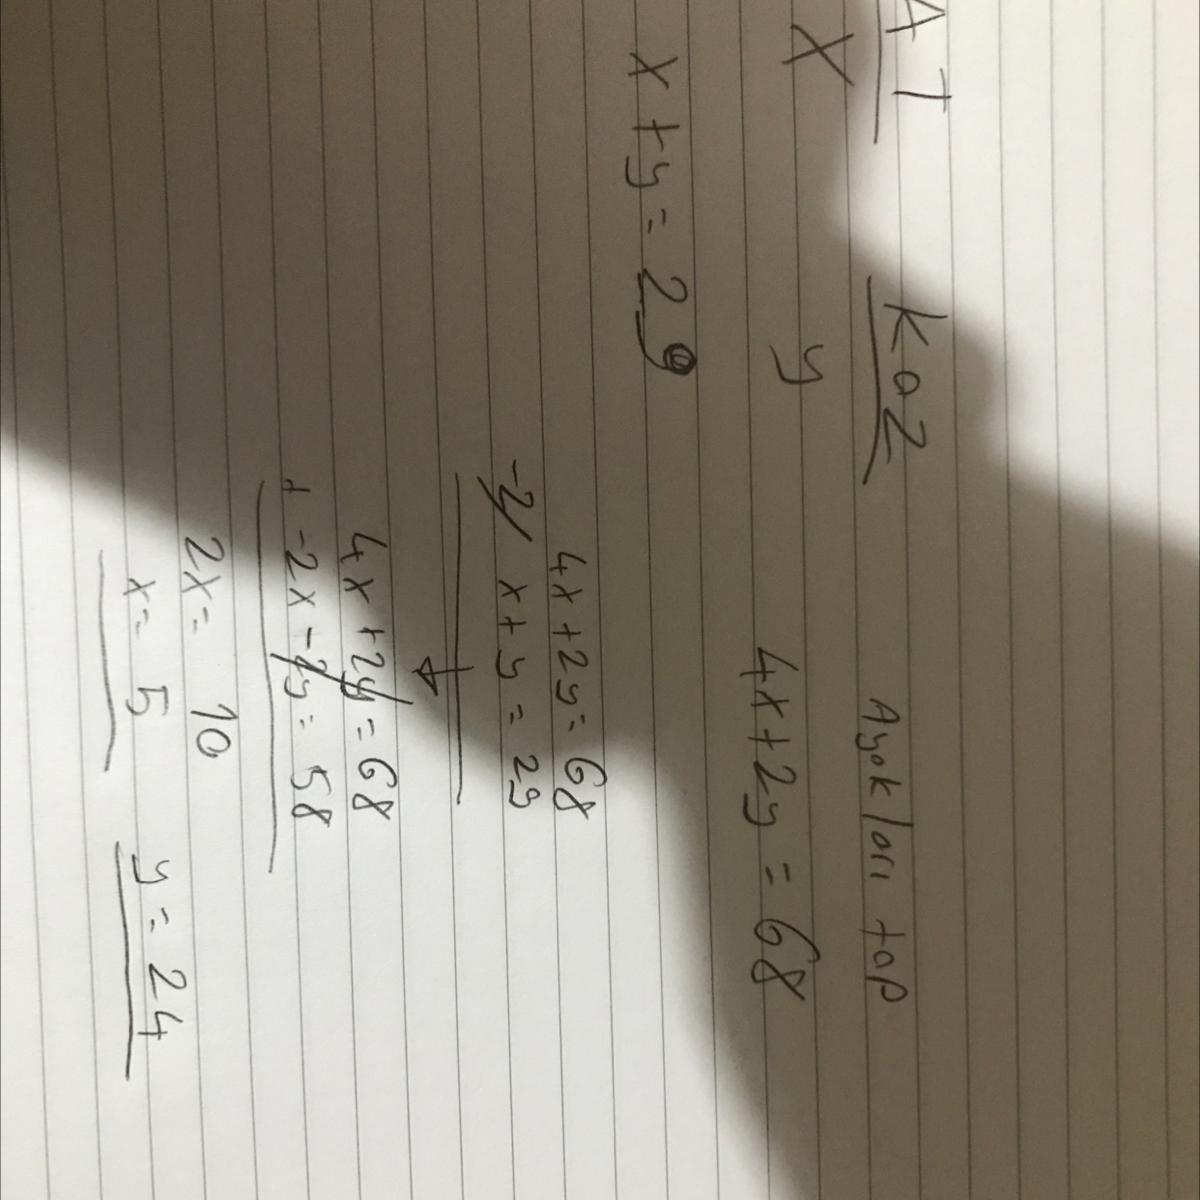 AT kaz Ayakları top
x y 4x+2y=68
x+y=29
4x+2y=68
-2/ x+y=29
4x+2y=68
+ -2x-2y=58
2x= 10
x= 5 y=24